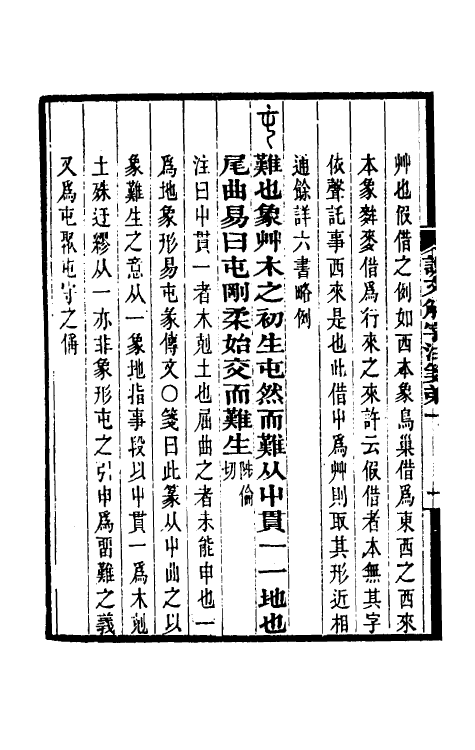 艸也假借之例如西本象鳥巢借爲東西之西來
本象麰麥借爲行來之來許云假借者本無其字
依聲託事西來是也此借屮爲艸則取其形近相
通餘詳六書略例
難也象艸木之初生屯然而難从屮貫一一地也
尾曲易曰屯剛柔始交而難生陟倫切
注曰屮貫一者木剋土也屈曲之者未能申也一
爲地象形易屯彖傳文○箋曰此篆从屮曲之以
象難生之意从一象地指事段以屮貫一爲木剋
土殊迂繆从一亦非象形屯之引申爲畱難之義
又爲屯聚屯守之偁